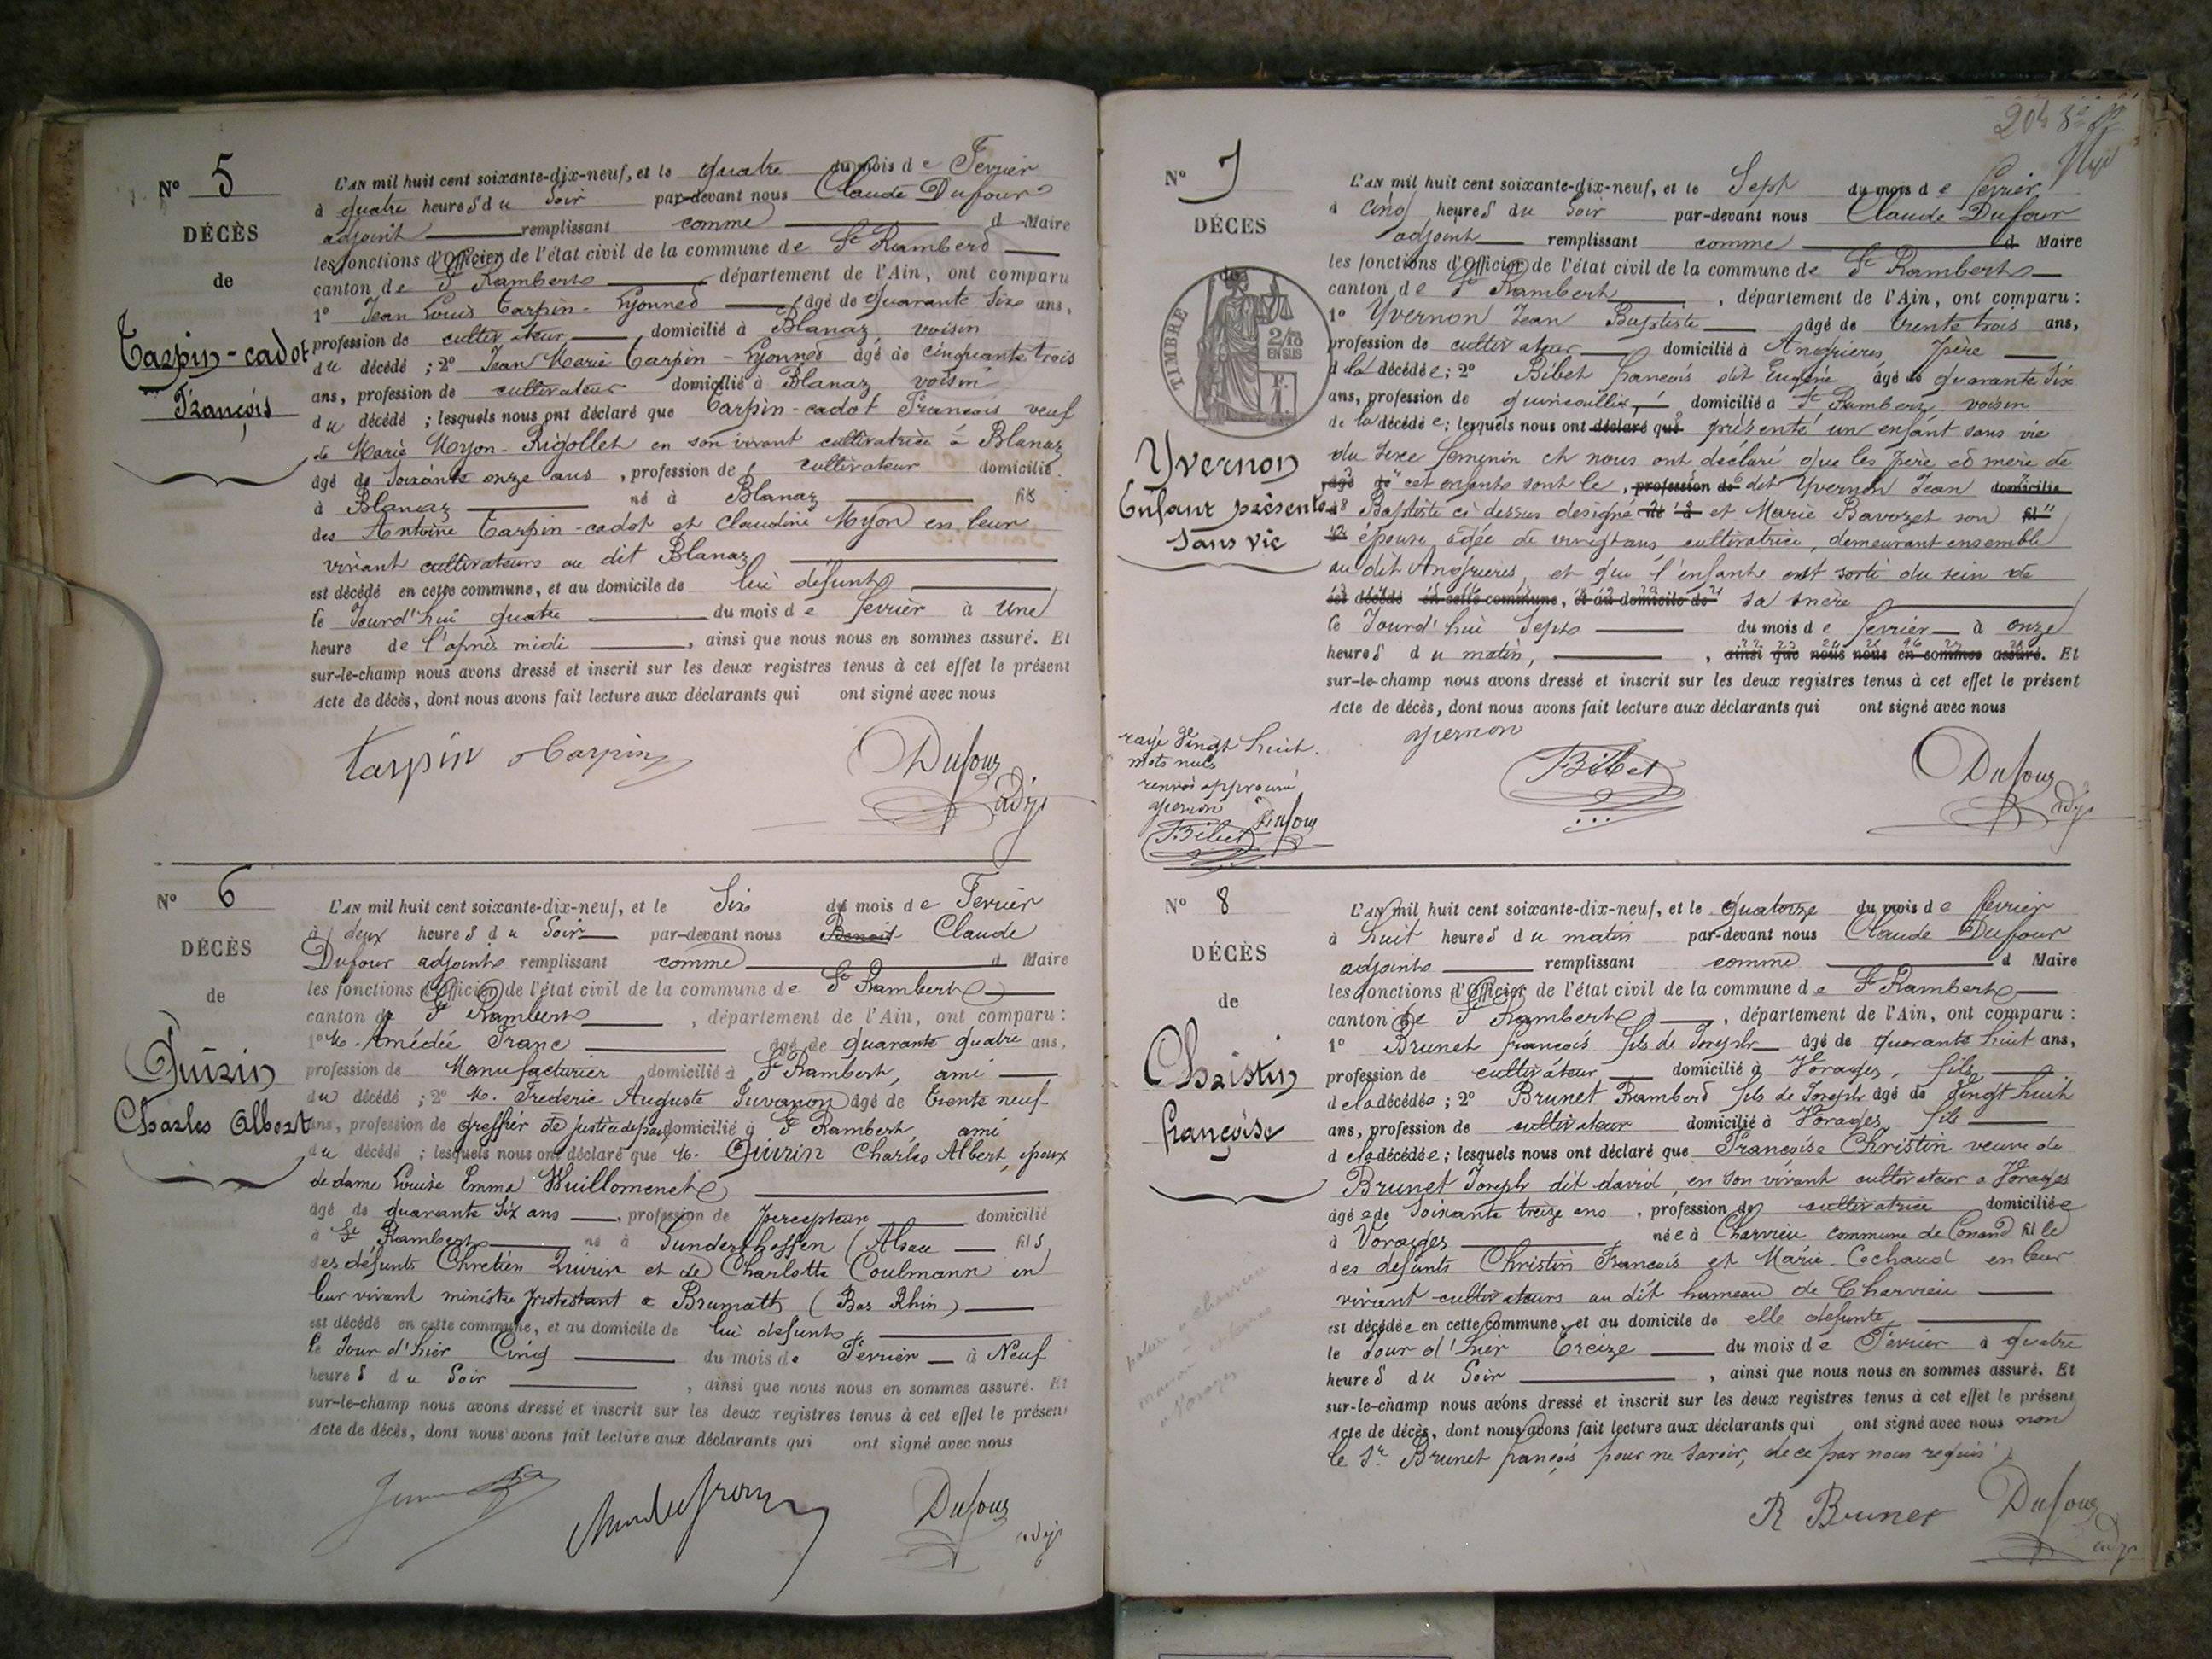 N° 5
DÉCÈS
de
Tarpin-cadot
François
L'AN mil huit cent soixante-dix-neuf, et le quatre du mois de Fevrier
à quatre heures du Soir par-devant nous Claude Dufour
adjoint remplissant comme d Maire
les fonctions d'Officier de l'état civil de la commune de St Rambert
canton de St Rambert département de l'Ain, ont comparu
1° Jean Louis Tarpin-Lyonnet âgé de quarante six ans,
profession de cultivateur domicilié à Blanaz voisin
du décédé ; 2° Jean Marie Tarpin-Lyonnet âgé de cinquante trois
ans, profession de cultivateur domicilié à Blanaz voisin
du décédé ; lesquels nous ont déclaré que Tarpin-cadot Francois veuf
de Marie Myon-Rigollet en son vivant cultivatrice à Blanaz
âgé de Soixante onze ans, profession de cultivateur domicilié
à Blanaz né à Blanaz fils
des Antoine Tarpin-cadot et Claudine Myon en leur
vivant cultivateurs au dit Blanaz
est décédé en cette commune, et au domicile de lui défunt
le Jourd'hui quatre du mois de fevrier à Une
heure de l'après midi, ainsi que nous nous en sommes assuré. Et
sur-le-champ nous avons dressé et inscrit sur les deux registres tenus à cet effet le présent
Acte de décès, dont nous avons fait lecture aux déclarants qui ont signé avec nous
Tarpin Tarpin Dufour
adj
N° 6
DÉCÈS
de
Quirin
Charles Albert
L'AN mil huit cent soixante-dix-neuf, et le Six du mois de Fevrier
à deux heures du Soir par-devant nous Benoit Claude
Dufour adjoint remplissant comme d Maire
les fonctions d'Officier de l'état civil de la commune de St Rambert
canton de St Rambert, département de l'Ain, ont comparu :
1° M. Amédée Franc âgé de quarante quatre ans,
profession de Manufacturier domicilié à St Rambert, ami
du décédé ; 2° M. Frederic Auguste Juvanon âgé de trente neuf
ans, profession de greffier de justice de paix domicilié à St Rambert, ami
du décédé ; lesquels nous ont déclaré que M. Quirin Charles Albert, époux
de dame Louise Emma Wuillomenet
âgé de quarante six ans, profession de percepteur domicilié
à St Rambert né à Gundershoffen (Alsace fils
des défunts Chretien Quirin et de Charlotte Coulmann en
leur vivant ministre protestant a Brumatt (Bas Rhin)
est décédé en cette commune, et au domicile de lui defunt
le Jour d'hier Cinq du mois de Fevrier à Neuf
heures du Soir, ainsi que nous nous en sommes assuré. Et
sur-le-champ nous avons dressé et inscrit sur les deux registres tenus à cet effet le présent
Acte de décès, dont nous avons fait lecture aux déclarants qui ont signé avec nous
Dufour
adj
204
N° 7
DÉCÈS
de
TIMBRE
2/10
EN SUS
Yvernon
Enfant présenté
sans vie
L'AN mil huit cent soixante-dix-neuf, et le Sept du mois de fevrier
à cinq heures du Soir par-devant nous Claude Dufour
adjoint remplissant comme d Maire
les fonctions d'Officier de l'état civil de la commune de St Rambert
canton de St Rambert, département de l'Ain, ont comparu :
1° Yvernon Jean Baptiste âgé de trente trois ans,
profession de cultivateur domicilié à Angrieres père
de la décédée ; 2° Bibet francois dit Eugène âgé de quarante six
ans, profession de domicilié à St Rambert voisin
de la décédée ; lesquels nous ont déclaré que présenté un enfant sans vie
du sexe feminin et nous ont déclaré que les père et mère de
âgé de cet enfant sont le, profession de dit Yvernon Jean domicilié
à Baptiste ci dessus designé né à et Marie Bavozet son fil
épouse, agée de vingt ans, cultivatrice, demeurant ensemble
au dit Angrieres, et que l'enfant est sorti du sein de
est décédé en cette commune, et au domicile de sa mère
le Jourd'hui Sept du mois de fevrier à onze
heures du matin, ainsi que nous nous en sommes assuré. Et
sur-le-champ nous avons dressé et inscrit sur les deux registres tenus à cet effet le présent
Acte de décès, dont nous avons fait lecture aux déclarants qui ont signé avec nous
yvernon Bibet Dufour
adj
rayé Vingt huit
mots nuls
renvoi approuvé
yvernon Dufour
F. Bibet
N° 8
DÉCÈS
de
Christin
françoise
L'AN mil huit cent soixante-dix-neuf, et le quatorze du mois de fevrier
à huit heures du matin par-devant nous Claude Dufour
adjoint remplissant comme d Maire
les fonctions d'Officier de l'état civil de la commune de St Rambert
canton de St Rambert, département de l'Ain, ont comparu :
1° Brunet francois fils de Joseph âgé de quarante huit ans,
profession de cultivateur domicilié à Vorages, fils
de la décédée ; 2° Brunet Rambert fils de Joseph âgé de vingt huit
ans, profession de cultivateur domicilié à Vorages fils
de la décédée ; lesquels nous ont déclaré que Françoise Christin veuve de
Brunet Joseph dit david, en son vivant cultivateur a Vorages
âgée de Soixante treize ans, profession de cultivatrice domiciliée
à Vorages née à Charvieu commune de Conand fille
des defunts Christin Francois et Marie Cochaud en leur
vivant cultivateurs au dit hameau de Charvieu
est décédée en cette commune, et au domicile de elle defunte
le Jour d'hier Treize du mois de Fevrier à quatre
heures du Soir, ainsi que nous nous en sommes assuré. Et
sur-le-champ nous avons dressé et inscrit sur les deux registres tenus à cet effet le présent
Acte de décès, dont nous avons fait lecture aux déclarants qui ont signé avec nous non
le Sr Brunet françois pour ne savoir, de ce par nous requis
R Brunet Dufour
adj